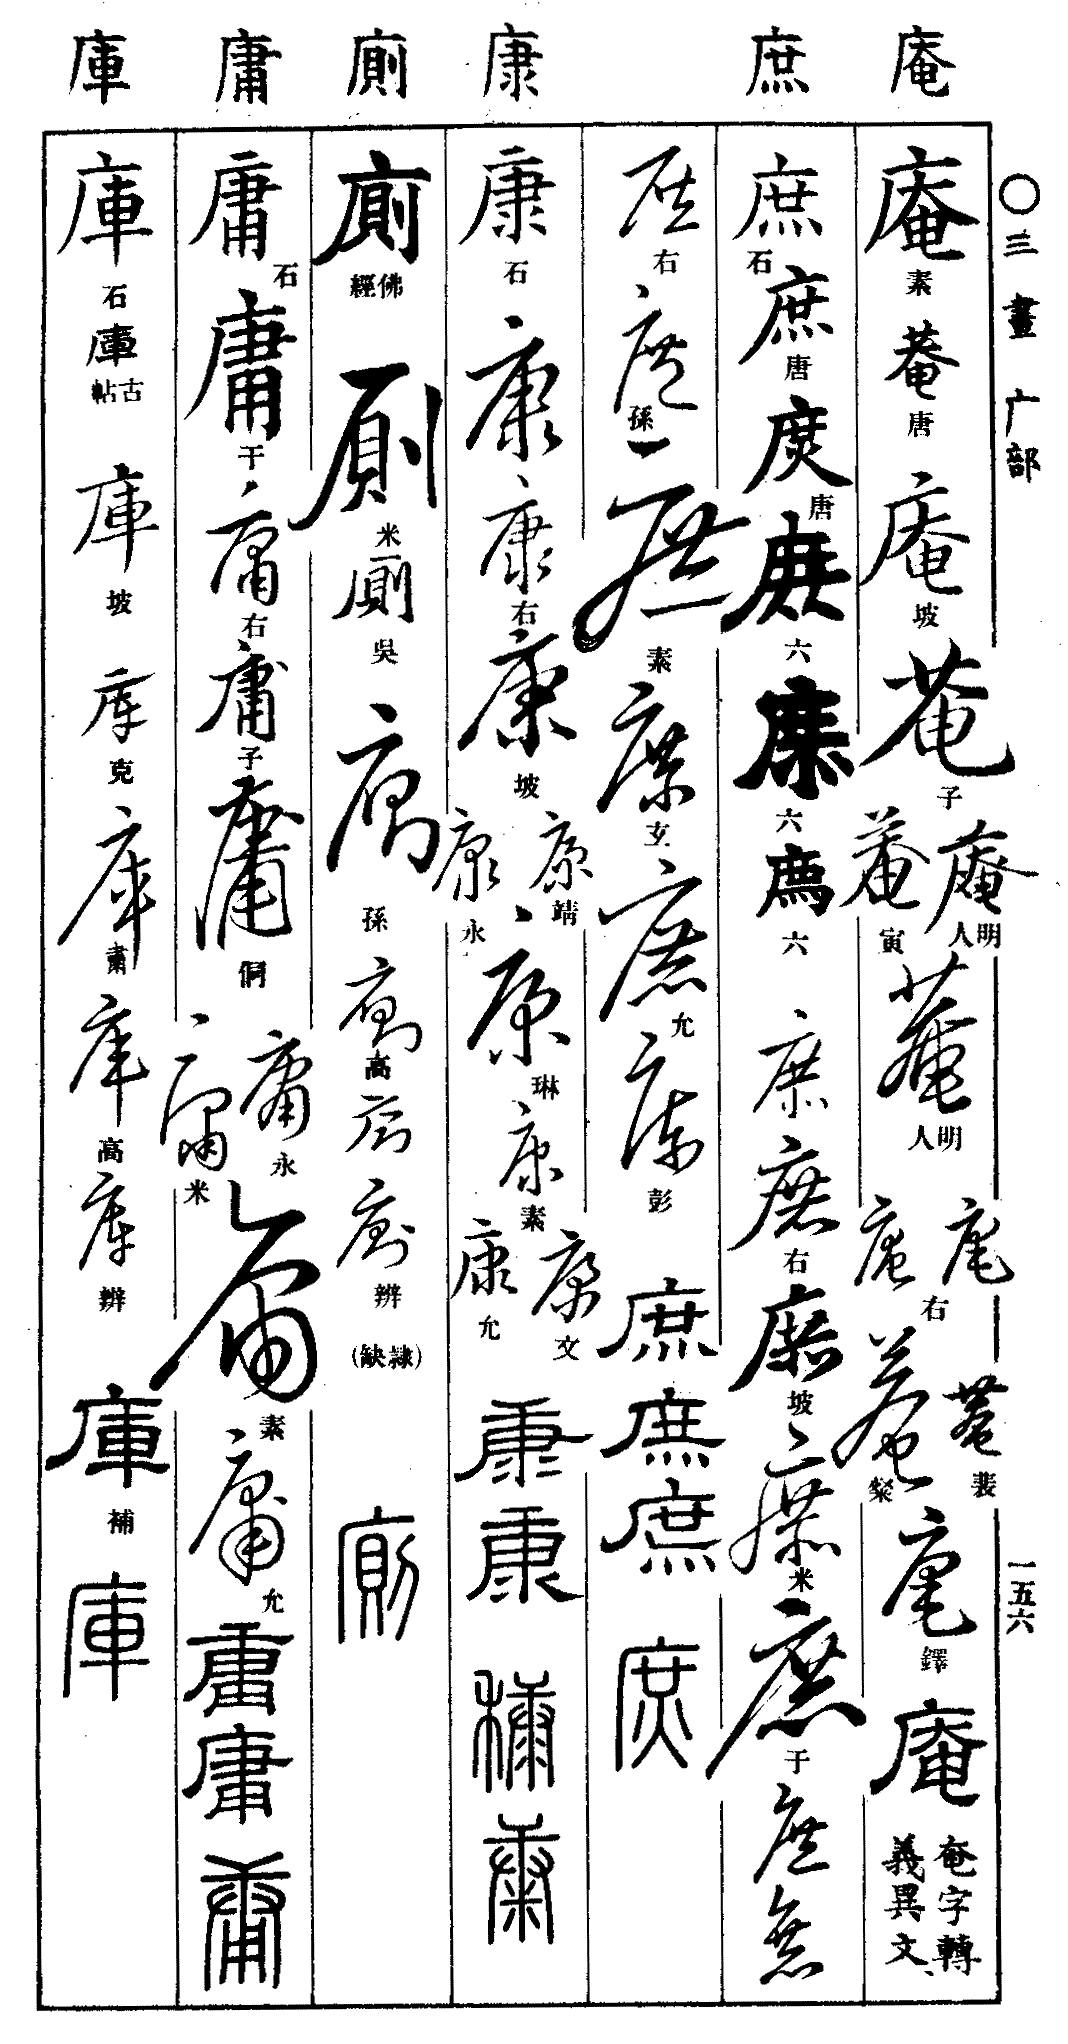 庵 庶 康 廁 庸 庫
〇三畫 广部
一五六
庵 素 菴 唐 庵 坡 菴 子 菴 寅 庵 明人 菴 明人 庵 右 庵 菴 粲 菴 裴 庵 鐸 庵
奄字轉
義異文
庶 石 庶 唐 庶 唐 庶 六 庶 六 庶 六 庶 庶 右 庶 坡 庶 米 庶 于 庶 庶
庶 右 庶 孫 庶 素 庶 玄 庶 允 庶 彭 庶 庶 庶 庶
康 石 康 康 右 康 坡 康 靖 康 永 康 琳 康 素 康 文 康 允 康 康 穅 康
廁 佛經 廁 米 廁 吳 廁 孫 廁 高 廁 廁 辨 (隷缺) 廁
庸 石 庸 于 庸 右 庸 子 庸 侗 庸 永 庸 米 庸 素 庸 允 庸 庸 庸
庫 石 庫 古帖 庫 坡 庫 克 庫 肅 庫 高 庫 辨 庫 補 庫